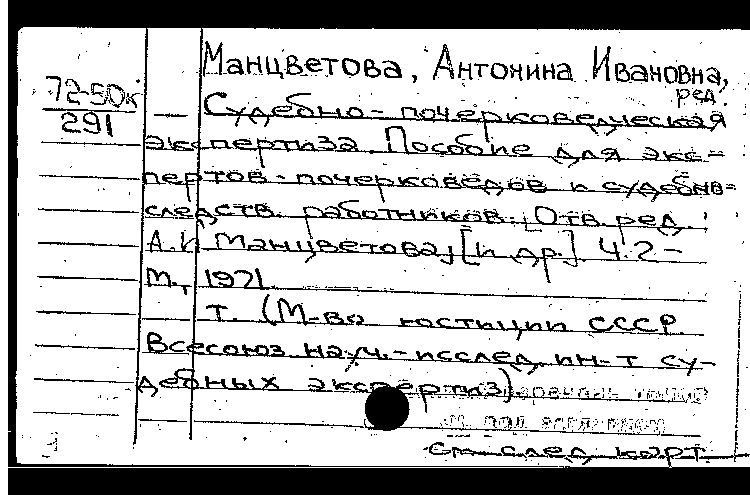 Манцветова, Антонина Ивановна,
ред.
72-50к
291
— Судебно-почерковедческая
экспертиза. Пособие для экс-
пертов-почерковедов и судебно-
следств. работников. [Отв. ред.:
А.И. Манцветова, [и др.]. Ч.2-
М., 1971.
т. (М-во юстиции СССР
Всесоюз. науч.-исслед. ин-т су-
дебных экспертиз)
см след. карт.
1